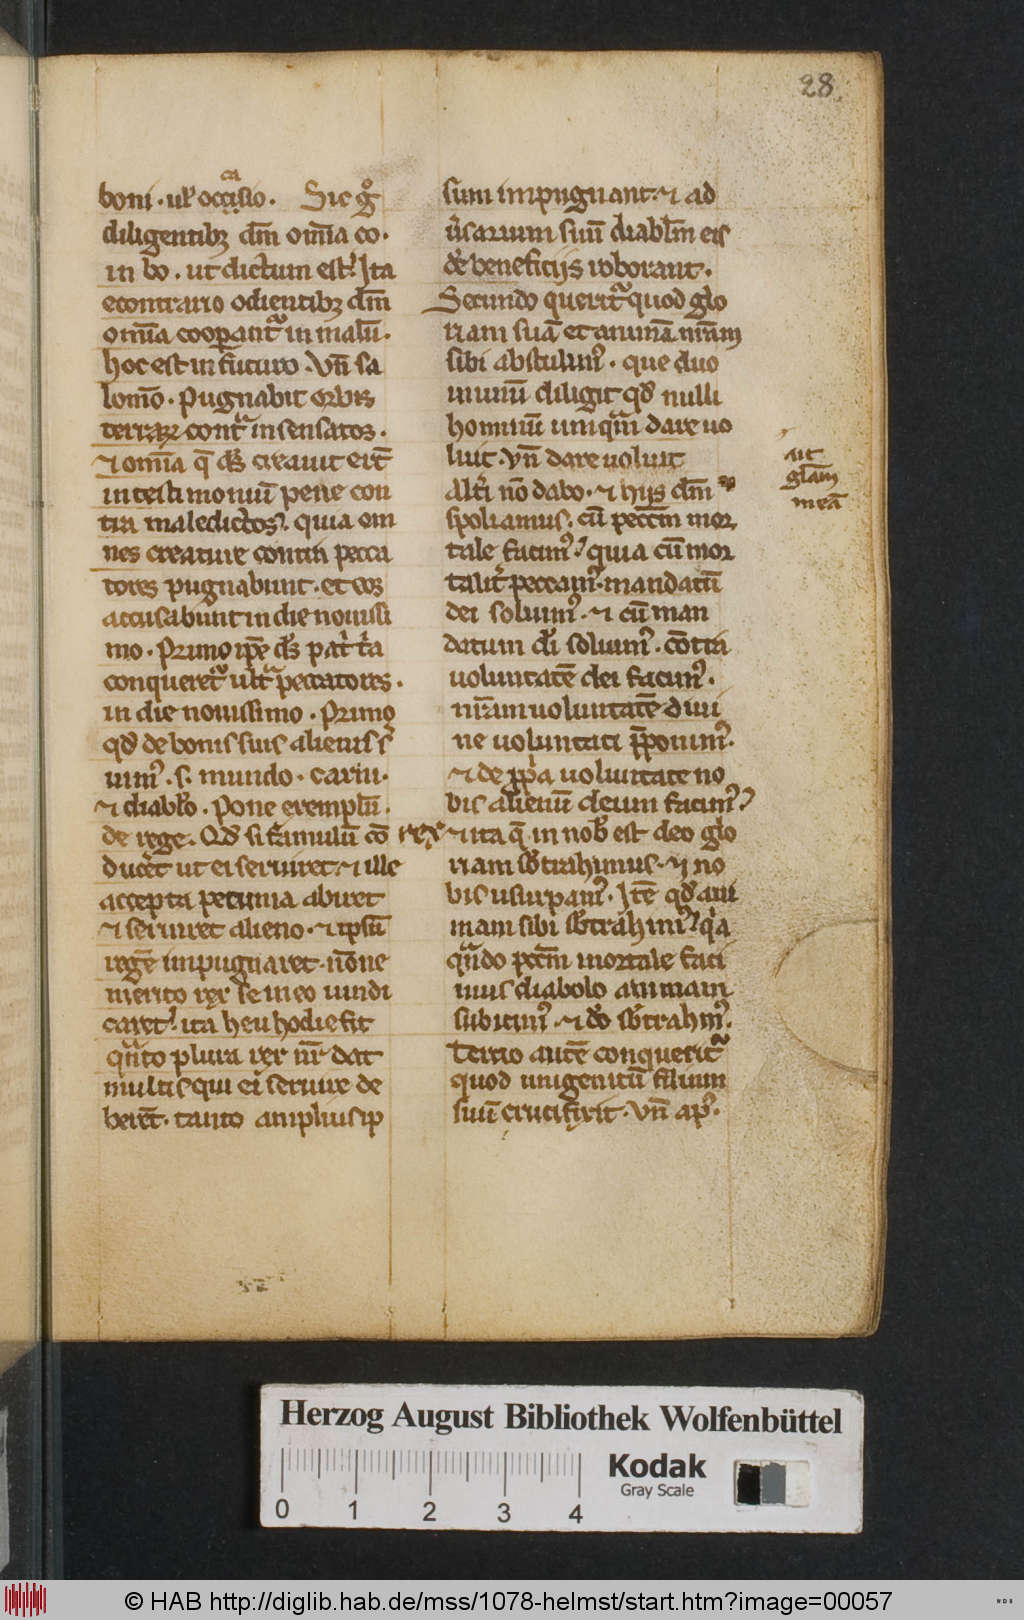 28
boni · ul' occasio · Sic gͦ
diligentibꝫ dm̄ om̄ia co·
in bo · ut dictum est. Ita
econtrario odientibꝫ dm̄
om̄ia cooperant᷑ in malū·
hoc est in futuro · Vn̄ sa
lomō · Pugnabit orbis
terraꝝ contra insensatos ·
⁊ om̄ia q̄ ds̄ creauit
in testimoniū pene con
tra maledictos. quia om
nes creature contra pecca
tores pugnabunt · et eos
accusabunt in die nouissi
mo · Primo ip̄e ds̄
conqueret᷑ peccatores ·
in die nouissimo · Primo
qd̄ de bonis suis alienis
· s · mundo · carni ·
⁊ diabl̄o · Pone exemplū ·
de rege. Qd̄ si famulū cō rex
duc̄et ut ei seruiret ⁊ ille
accepta pecunia abiret
⁊ seruiret alieno · ⁊ ipsū
regē impugnaret · nōne
merito rex se in eo uindi
caret. ita heu hodie fit
qn̄to plura rex nr̄ dat
multis qui ei seruire de
berēt · tanto amplius ip
sum impugnant · ⁊ ad
u̓sarium suū diabl̄m eis
de beneficijs roborant ·
Secundo querit᷑ quod glo
riam suā et animā nr̄am
sibi abstulim᷒ · que duo
nimiū diligit qd̄ nulli
hominū unquam dare uo
luit · Vn̄ dare uoluit
Alt̓i nō dabo · ⁊ hijs dm̄
spoliamus · cū peccm̄ mor
tale facim᷒ quia cū mor
talit̓ peccam᷒ · mandatū
dei soluim᷒ · ⁊ cū man
datum di̅ soluim᷒ · cōtra
uoluntatē dei facim᷒ ·
nr̄am uoluntatē diui
ne uoluntati p̄ponim᷒ ·
⁊ de ꝓp̓a uoluntate no
bis alienū deum facim᷒
⁊ ita q̄ in nob̄ est deo glo
riam sb̄trahimus · ⁊ no
bis usurpam᷒ · Itē qd̄ ani
mam sibi sb̄trahim᷒ q̓a
qn̄do pcc̄m mortale faci
mus diabolo animam
subicim᷒ · ⁊ do̅ sb̄trahim᷒.
Tertio autē conquerit᷑
quod unigenitū filium
suū crucifixit · Vn̄ ap᷒ ·
ait
glām
meā
Herzog August Bibliothek Wolfenbüttel
Kodak
Gray Scale
0 1 2 3 4
© HAB http://diglib.hab.de/mss/1078-helmst/start.htm?image=00057